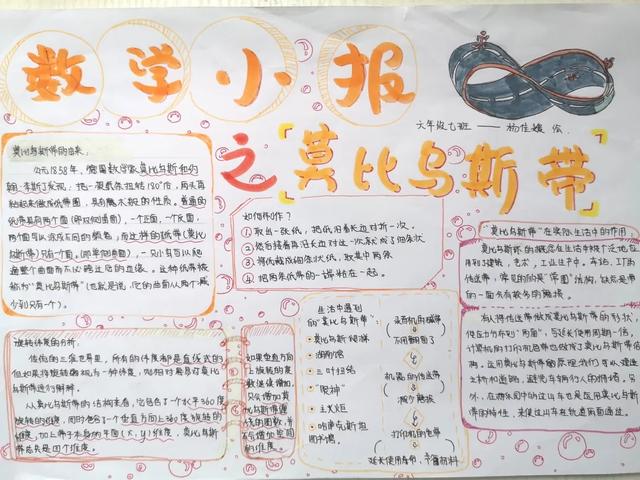 数学小报
之
莫比乌斯带
六年级七班——杨佳媛 绘
莫比乌斯带的由来：
公元1858年，德国数学家莫比乌斯和约
翰·李斯丁发现：把一根纸条扭转180°后，两头再
粘起来做成纸带圈，具有魔术般的性质。普通的
纸带具有两个面（即双侧曲面），一个正面，一个反面，
两个面可以涂成不同的颜色；而这样的纸带（莫比
乌斯带）只有一个面（即单侧曲面），一只小虫可以爬
遍整个曲面而不必跨过它的边缘。这种纸带被
称为“莫比乌斯带”（也就是说，它的曲面从两个减
少到只有一个）。
如何制作？
① 取出一张纸，把纸沿着长边对折一次。
② 然后接着再沿长边对过一次系成了细条状
③ 将纸裁成细条状纸，取其中两条
④ 把两条纸带的一端粘在一起。
“莫比乌斯带”在实际生活中的作用
莫比乌斯环的概念在生活中被广泛地应
用到了建筑，艺术，工业生产中。车站、工厂的
传送带，常见的的是“带圈”结构，缺点是带
的一面会有较多的磨损。
有人将传送带做成莫比乌斯带的形状，
使应力分布到“两面”，可延长使用周期一倍，
计算机的打印机色带也做成了莫比乌斯带结
构。运用莫比乌斯带的原理我们可以建造
立桥和道路，避免车辆行人的拥堵。另
外，在游乐园中的过山车也是运用莫比乌斯
带的特性，来使过山车轨道两面通过。
旋转体度的分析：
传统的三条世界里，所有的体度都是直线式的
但如果将旋转确视为一种体度，则相对易易对莫比
乌斯带进行解释。
从莫比乌斯带的结构来看，它包含了一个水平360度
旋转的维度，同时包含了一个垂直方向上360度旋转的
维度，加上带子本身的平面（x，y）维度，莫比乌斯
带应先是四个维度。
如果垂直方向
上旋转的度
数继续增加，
只会增加莫
比乌斯带缠
绕的圈数，并
不会增加空间
的维度。
生活中遇到
的“莫比乌斯带”：
莫比乌斯眼镜
三叶扭结
“眼神”
哈萨克斯坦
图书馆。
录音机的磁带
↓
不用翻面了
机器的传送带
↓
减少磨损
打印机的色带
↓
延长使用寿命，节省材料